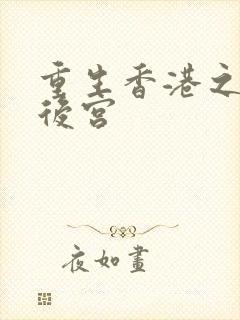 重生香港之
後宮
夜如畫